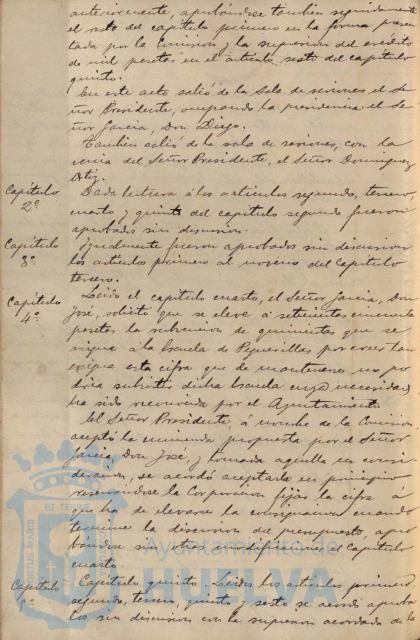 anteriormente, aprobándose tambien seguidamente
el resto del capítulo primero en la forma presen-
tada por la Comision y la supresion del crédito
de mil pesetas en el artículo sesto del capítulo
quinto.
En este acto salió de la Sala de sesiones el Se-
ñor Presidente, ocupando la presidencia el Se-
ñor Garcia, Don Diego.
Tambien salió de la sala de sesiones, con la
venia del Señor Presidente, el Señor Dominguez
Ortiz.
Capítulo 2º
Dada lectura á los artículos segundo, tercero,
cuarto y quinto del capítulo segundo fueron
aprobados sin discusion.
Capítulo 3º
Igualmente fueron aprobados sin discusion
los artículos primero al noveno del Capítulo
tercero.
Capítulo 4º
Leido el capítulo cuarto, el Señor Garcia, Don
José, solicitó que se eleve á setecientas cincuenta
pesetas la subvencion de quinientas que se
asigna á la Escuela de Pequerillas, por creer tan
exigua esta cifra que de mantenerse no po-
dria subsistir dicha Escuela cuya necesidad
ha sido reconocida por el Ayuntamiento.
El Señor Presidente, á nombre de la Comision,
aceptó la enmienda propuesta por el Señor
Garcia, Don José, y tomada aquella en consi-
deracion, se acordó aceptarla en principio,
reservándose la Corporacion fijar la cifra á
que ha de elevarse la consignacion cuando
termine la discusion del presupuesto, apro-
bándose sin otra modificacion el Capítulo
cuarto.
Capítulo
Capítulo quinto. Leidos los artículos primero,
segundo, tercero, quinto y sesto se acordó aprobar
los sin discusion con la supresion acordada de l
ET TERRÆ
PORTUS MARIS
Ayuntamiento de
HUELVA